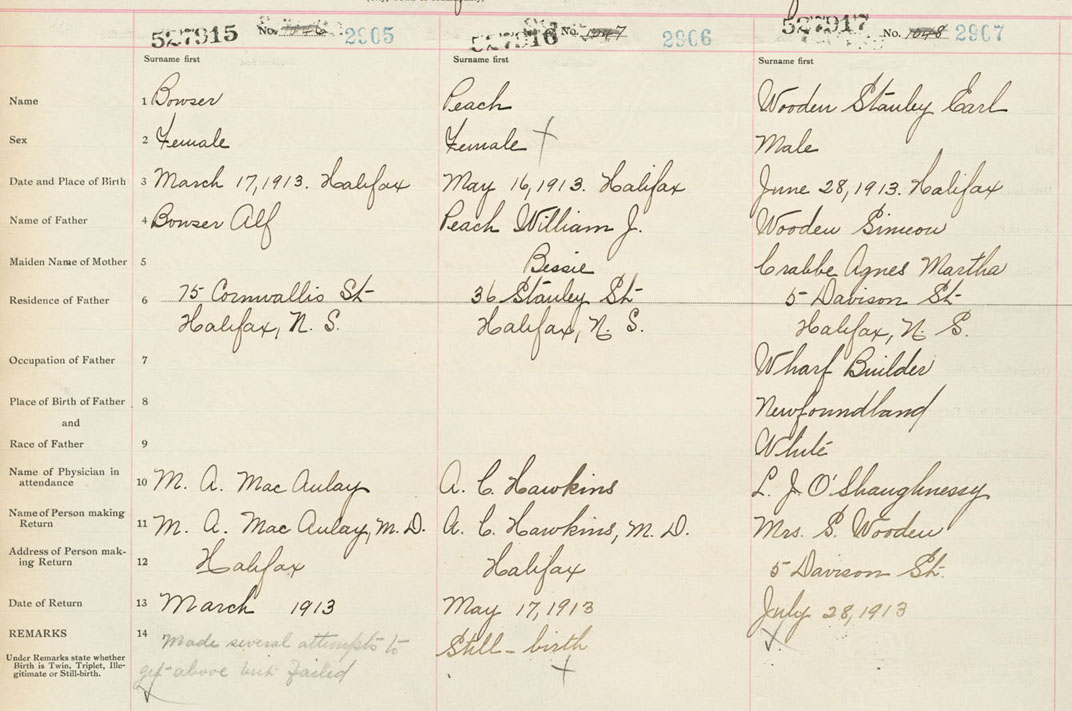 527915 No. 1046 2905
527916 No. 1047 2906
527917 No. 1048 2907
Surname first Surname first Surname first
Name 1 Bowser Peach Wooden Stanley Earl
Sex 2 Female Female Male
Date and Place of Birth 3 March 17, 1913. Halifax May 16, 1913. Halifax June 28, 1913. Halifax
Name of Father 4 Bowser Alf Peach William J. Wooden Simeon
Maiden Name of Mother 5 Bessie Crabbe Agnes Martha
Residence of Father 6 75 Cornwallis St 36 Stanley St. 5 Davison St
Halifax, N. S. Halifax, N. S. Halifax, N. S.
Occupation of Father 7 Wharf Builder
Place of Birth of Father 8 Newfoundland
and
Race of Father 9 White
Name of Physician in
attendance 10 M. A. Mac Aulay A. C. Hawkins L. J. O'Shaughnessy
Name of Person making
Return 11 M. A. Mac Aulay, M. D. A. C. Hawkins, M. D. Mrs. S. Wooden
Address of Person mak-
ing Return 12 Halifax Halifax 5 Davison St.
Date of Return 13 March 1913 May 17, 1913 July 28, 1913
REMARKS 14 Made several attempts to Still-birth
get above but failed
Under Remarks state whether
Birth is Twin, Triplet, Ille-
gitimate or Still-birth.